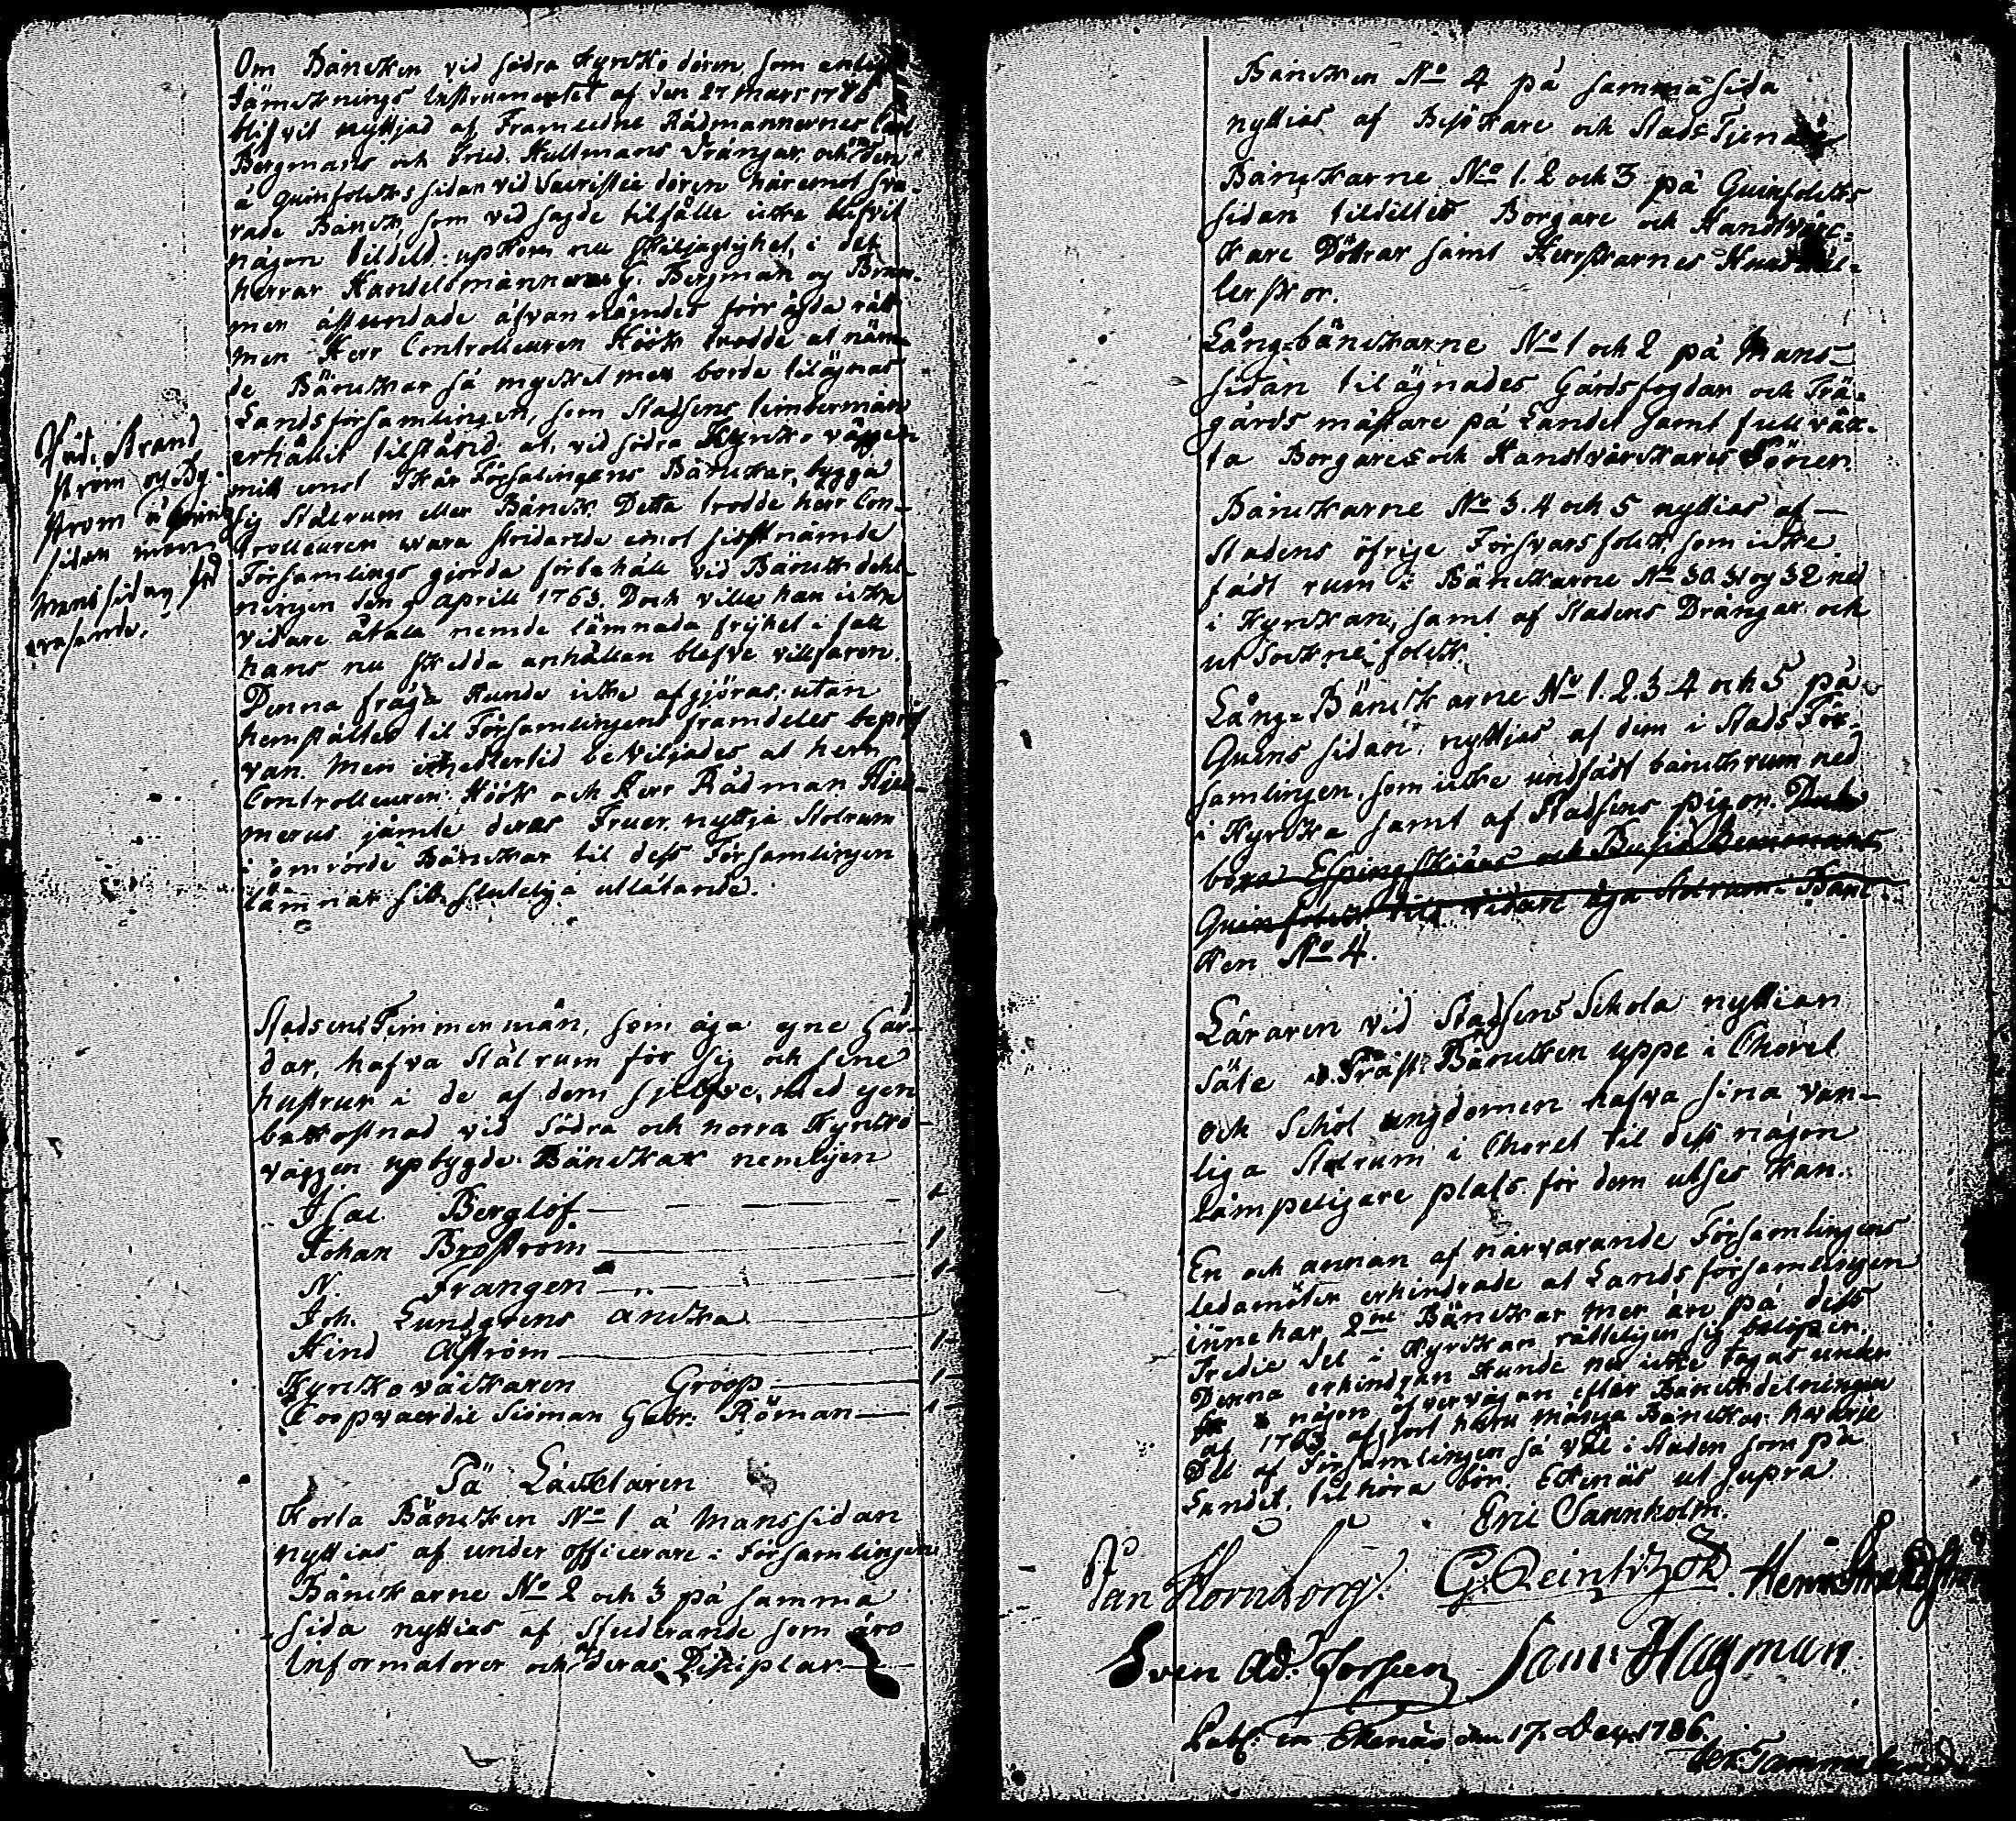 Om Bäncken vid södra Kyrcko dören som enligt
Jämcknings Instrumentet af den 27 Mars 1776
blifvit nyttjad af Framledne Rådmannernes Carl
Bergmans och Fried. Hultmans Drängar, och den
å quinfolcks sidan vid Sacristie dören häremot sva-
rade Bänck, som vid sagde tilfälle icke blifvit
någon tildeld, upkom nu skiljagtighet, i det
herrar Handelsmännerne G. Bergman og
men åstundade åfvan nämdes förr ägda rätt
men Herr Controlleuren Höök trodde at näm-
de Bänckar så mycket mer borde tilägnas
Landsförsamlingen, som Stadsens timbermän
erhållit tilstånd at, vid södra Kyrcko väggen
mitt emot Skär Församlingens Bänckar, bygga
sig Stålrum eller Bänck. Detta trodde herr Con-
trolleuren wara stridande emot sistnämde
Församlings gjorda förbehåll vid Bänckdehl-
ningen den 9 Aprill 1763. Doch ville han icke
vidare åtala nemde lämnade frihet i fall
hans nu skedda anhållan blefve villfaren.
Denna fråga kunde icke afgjöras, utan
hemstältes til Församlingens framdeles bepröf
van. Men imedlertid beviljades at herr
Controlleuren Höök och Herr Rådman
merus jämte deras Fruer nyttja Stolrum
i omrörde Bänckar til dess Församlingen
lämnat sitt slutelige utlåtande.
strom og By-
strom å quins
sidan
Manssidan
Stadsens Timmermän, som äga egne går-
dar, hafva Stålrum för sig och sine
hustrur i de af dem sjelfve, med egen
bekostnad vid Södra och norra Kyrcko
väggen upbygde Bänckar nemligen
Isac Berglöf — 1
Johan Broström — 1
N. Frangen — 1
Joh. Lundgrens äncka —
Hind Åström — 1
Kyrckoväcktaren Groop — 1
Coopvaerdie Sioman Gabr. Röman — 1
På Läcktaren
Korta Bäncken No 1 å Manssidan
nyttias af under officerare i Församlingen
Bänckarne No 2 och 3 på samma
sida nyttias af Studerande som äro
Informatorer och deras Disciplar
Bäncken No 4 på samma sida
nyttias af Besökare och Stads Tjenare
Bänckarne No 1. 2 och 3 på Quinfolcks
sidan tildeltes Borgare och Handtvärc-
kare Döttrar samt Herrskarnes Hushål-
lerskor.
Lång-bänckarne No 1 och 2 på Mans-
sidan tilägnades Gårdsfogdar och Trä-
gårds mästare på Landet samt fullväx-
ta Borgares och Handtvärckares Söner.
Bänckarne No 3. 4 och 5 nyttias af —
Stadens öfrige Försvarsfolck, som icke
fådt rum i Bänckarne No 30. 31 og 32 ned
i Kyrckan, samt af Stadens Drängar och
ut Sockne folck.
Lång-Bänckarne No 1. 2. 3. 4 och 5 på
Quins sidan, nyttjes af dem i Stads För-
samlingen, som icke undfådt bänckrum ned
i Kyrcka samt af Stadsens pigor. Doch
böra och
Quinfolck vidare äga Stolrum i Bänc-
ken No 4.
Läraren vid Stadsens Schola nyttian
säte i Präst Bäncken uppe i Choret
och Schol ungdomen hafva sina van-
liga Stolrum i Choret til dess någon
lämpeligare plats för dem utses kan.
En och annan af närvarande Församlingens
ledamöter erhindrade at Lands församlingen
innehar 2ne Bänckar mer än på dess
Tredie del i Kyrckan rätteligen sig belöper.
Denna erhindran kunde nu icke tagas under
någon öfvervägan efter Bänckdelningen
af 1763 afgjort huru många Bänckar hvarje
Del af Församlingen så väl i Staden som på
Landet, tilhöra bör. Ekenäs ut supra
Eric Tannholm.
Jan Hornborg.
Sven Ad. Forssen
Sam: Hagman.
Publ. in Ekenäs den 17. Dec. 1786.